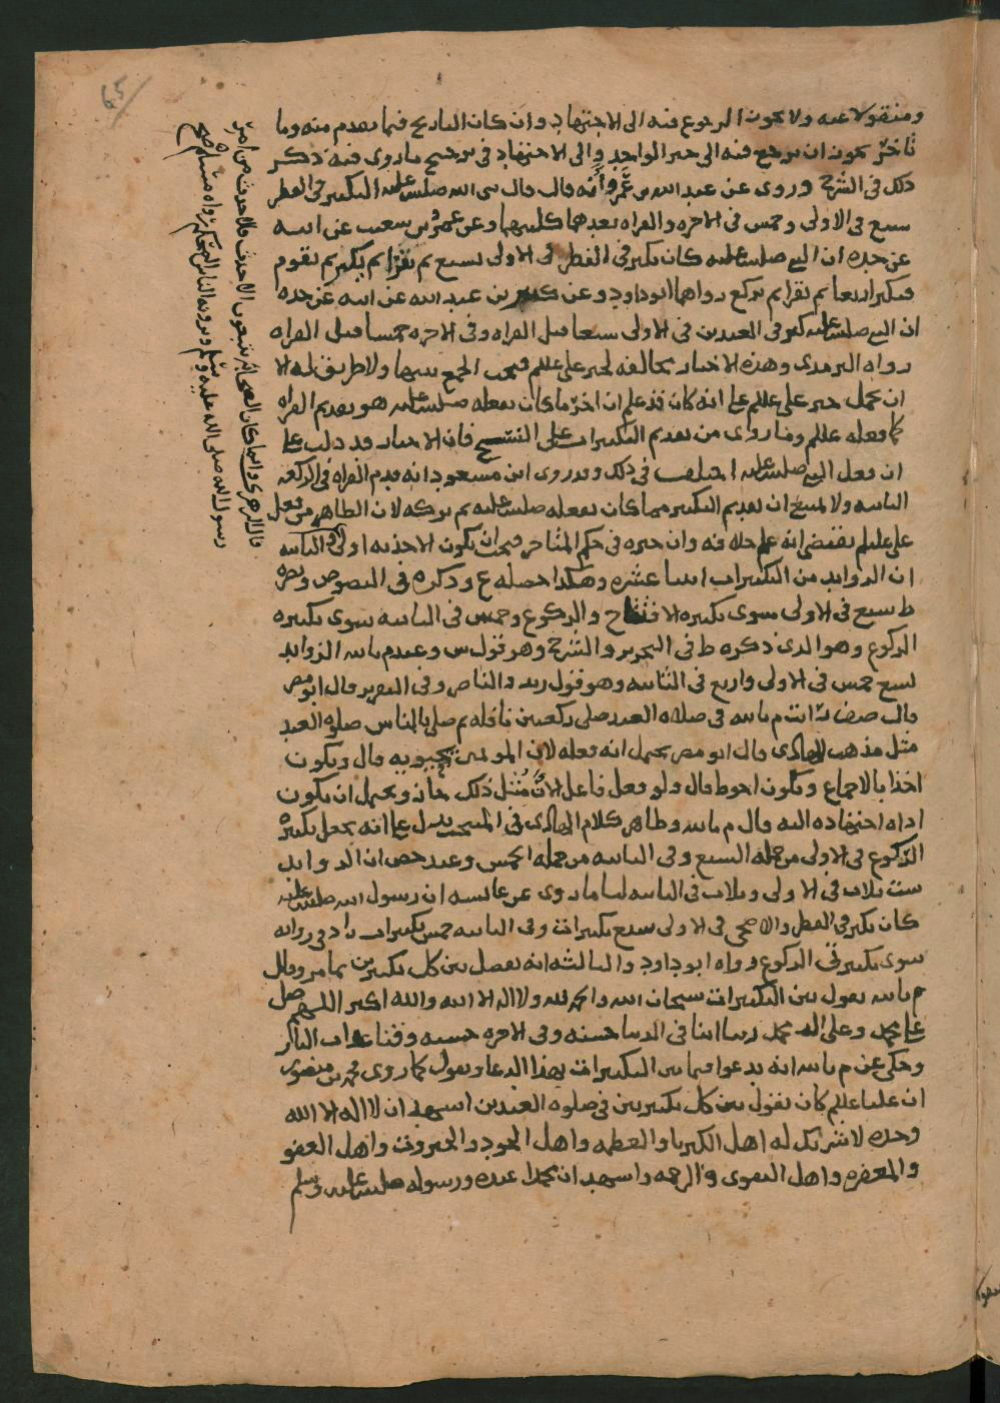 ومنقولا عنه ولا يجوز الرجوع فيه الى الاجتهاد وان كان التاريخ فيما تقدم منه وما
تاخر يجوز ان يرجع فيه الى خبر الواحد والى الاجتهاد في ترجيح ما روى فيه ذكر
ذلك في الشرح وروى عن عبد الله بن عمرو انه قال قال نبى الله صلى الله عليه التكبير في الفطر
سبع في الاولى وخمس في الاخره والقراه بعدهما كلتيهما وعن عمرو بن شعيب عن ابيه
عن جده ان النبي صلى الله عليه كان يكبر في الفطر في الاولى سبع ثم يقرا ثم يكبر ثم يقوم
فيكبر اربعا ثم يقرا ثم يركع رواهما ابو داود وعن كثير بن عبد الله عن ابيه عن جده
ان النبي صلى الله عليه كبر في العيدين في الاولى سبعا قبل القراه وفي الاخره خمسا قبل القراه
رواه الترمذى وهذه الاخبار مخالفه لخبر علي عللم فيجب الجمع بينها ولا طريق له الا
ان يحمل خبر علي عللم على انه كان قد علم ان اخر ما كان يفعله صلى الله عليه هو تقديم القراه
كما فعله عللم وما روى من تقديم التكبيرات على النسخ فان الاخبار قد دلت على
ان فعل النبي صلى الله عليه اختلف في ذلك وقد روى ابن مسعود انه قدم القراه في الركعه
الثانيه ولا يمتنع ان تقديم التكبير مما كان يفعله صلى الله عليه ثم تركه لان الظاهر من فعل
علي عللم يقتضى انه علم حاله فيه وان خبره في حكم المتاخر فيجب ان يكون الاخذ به اولى والثانيه
ان الزوايد من التكبيرات اثنتا عشره وهكذا حصله ع وذكره في النصوص ونصره
ط سبع في الاولى سوى تكبيره الافتتاح والركوع وخمس في الثانيه سوى تكبيره
الركوع وهو الذى ذكره ط في التحرير والشرح وهو قول س وعند م بالله الزوايد
تسع خمس في الاولى واربع في الثانيه وهو قول زيد والناصر وفي التقرير قال ابو مضر
قال رايت م بالله في صلاه العيد صلى ركعتين نافله ثم صلى بالناس صلوه العيد
مثل مذهب الهادى قال ابو مضر يحتمل انه فعله لان المؤتمين يحبونه قال ويكون
اخذا بالاجماع ويكون احوط قال ولو فعل فاعل الان مثل ذلك جاز ويحتمل ان يكون
اداه اجتهاده اليه وقال م بالله وظاهر كلام الهادى في المنتخب يدل على انه يجعل تكبيره
الركوع في الاولى من جمله السبع وفي الثانيه من جمله الخمس وعند ان الزوايد
ست ثلاث في الاولى وثلاث في الثانيه لنا ما روى عن عايشه ان رسول الله صلى الله عليه
كان يكبر في الفطر والاضحى في الاولى سبع تكبيرات وفي الثانيه خمس تكبيرات زاد في روايه
سوى تكبيرتى الركوع رواه ابو داود والثالثه انه يفصل بين كل تكبيرتين بما مر وقال
م بالله يقول بين التكبيرات سبحان الله والحمد لله ولا اله الا الله والله اكبر اللهم صل
على محمد وعلى ال محمد ربنا اتنا في الدنيا حسنه وفي الاخره حسنه وقنا عذاب النار
وحكى عن م بالله انه يدعوا فيما بين التكبيرات بهذا الدعا ويقول كما روى محمد بن منصور
ان عليا عللم كان يقول بين كل تكبيرتين في صلوه العيدين اشهد ان لا اله الا الله
وحده لا شريك له اهل الكبريا والعظمه واهل الجود والجبروت واهل العفو
والمغفره واهل التقوى والرحمه واشهد ان محمدا عبده ورسوله صلى الله عليه وسلم
قال الزهرى وانما كان الصحابه يتبعون الاحدث فالاحدث من امر
رسول الله صلى الله عليه وسلم ويرونه الناسخ المحكم رواه مسلم صح
65